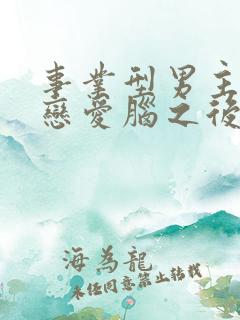 事業型男主
戀愛腦之後
海為龍
未任同意禁止轉載